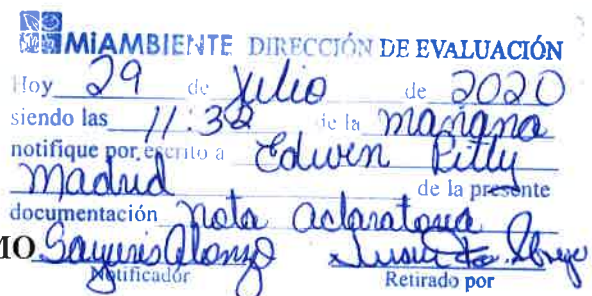 MiAMBIENTE DIRECCIÓN DE EVALUACIÓN
Hoy 29 de Julio de 2020
siendo las 11:32 de la mañana
notifique por escrito a Edwin Pitty
Madrid de la presente
documentación nota aclaratoria
MO Sayuris Alonzo
Notificador Retirado por